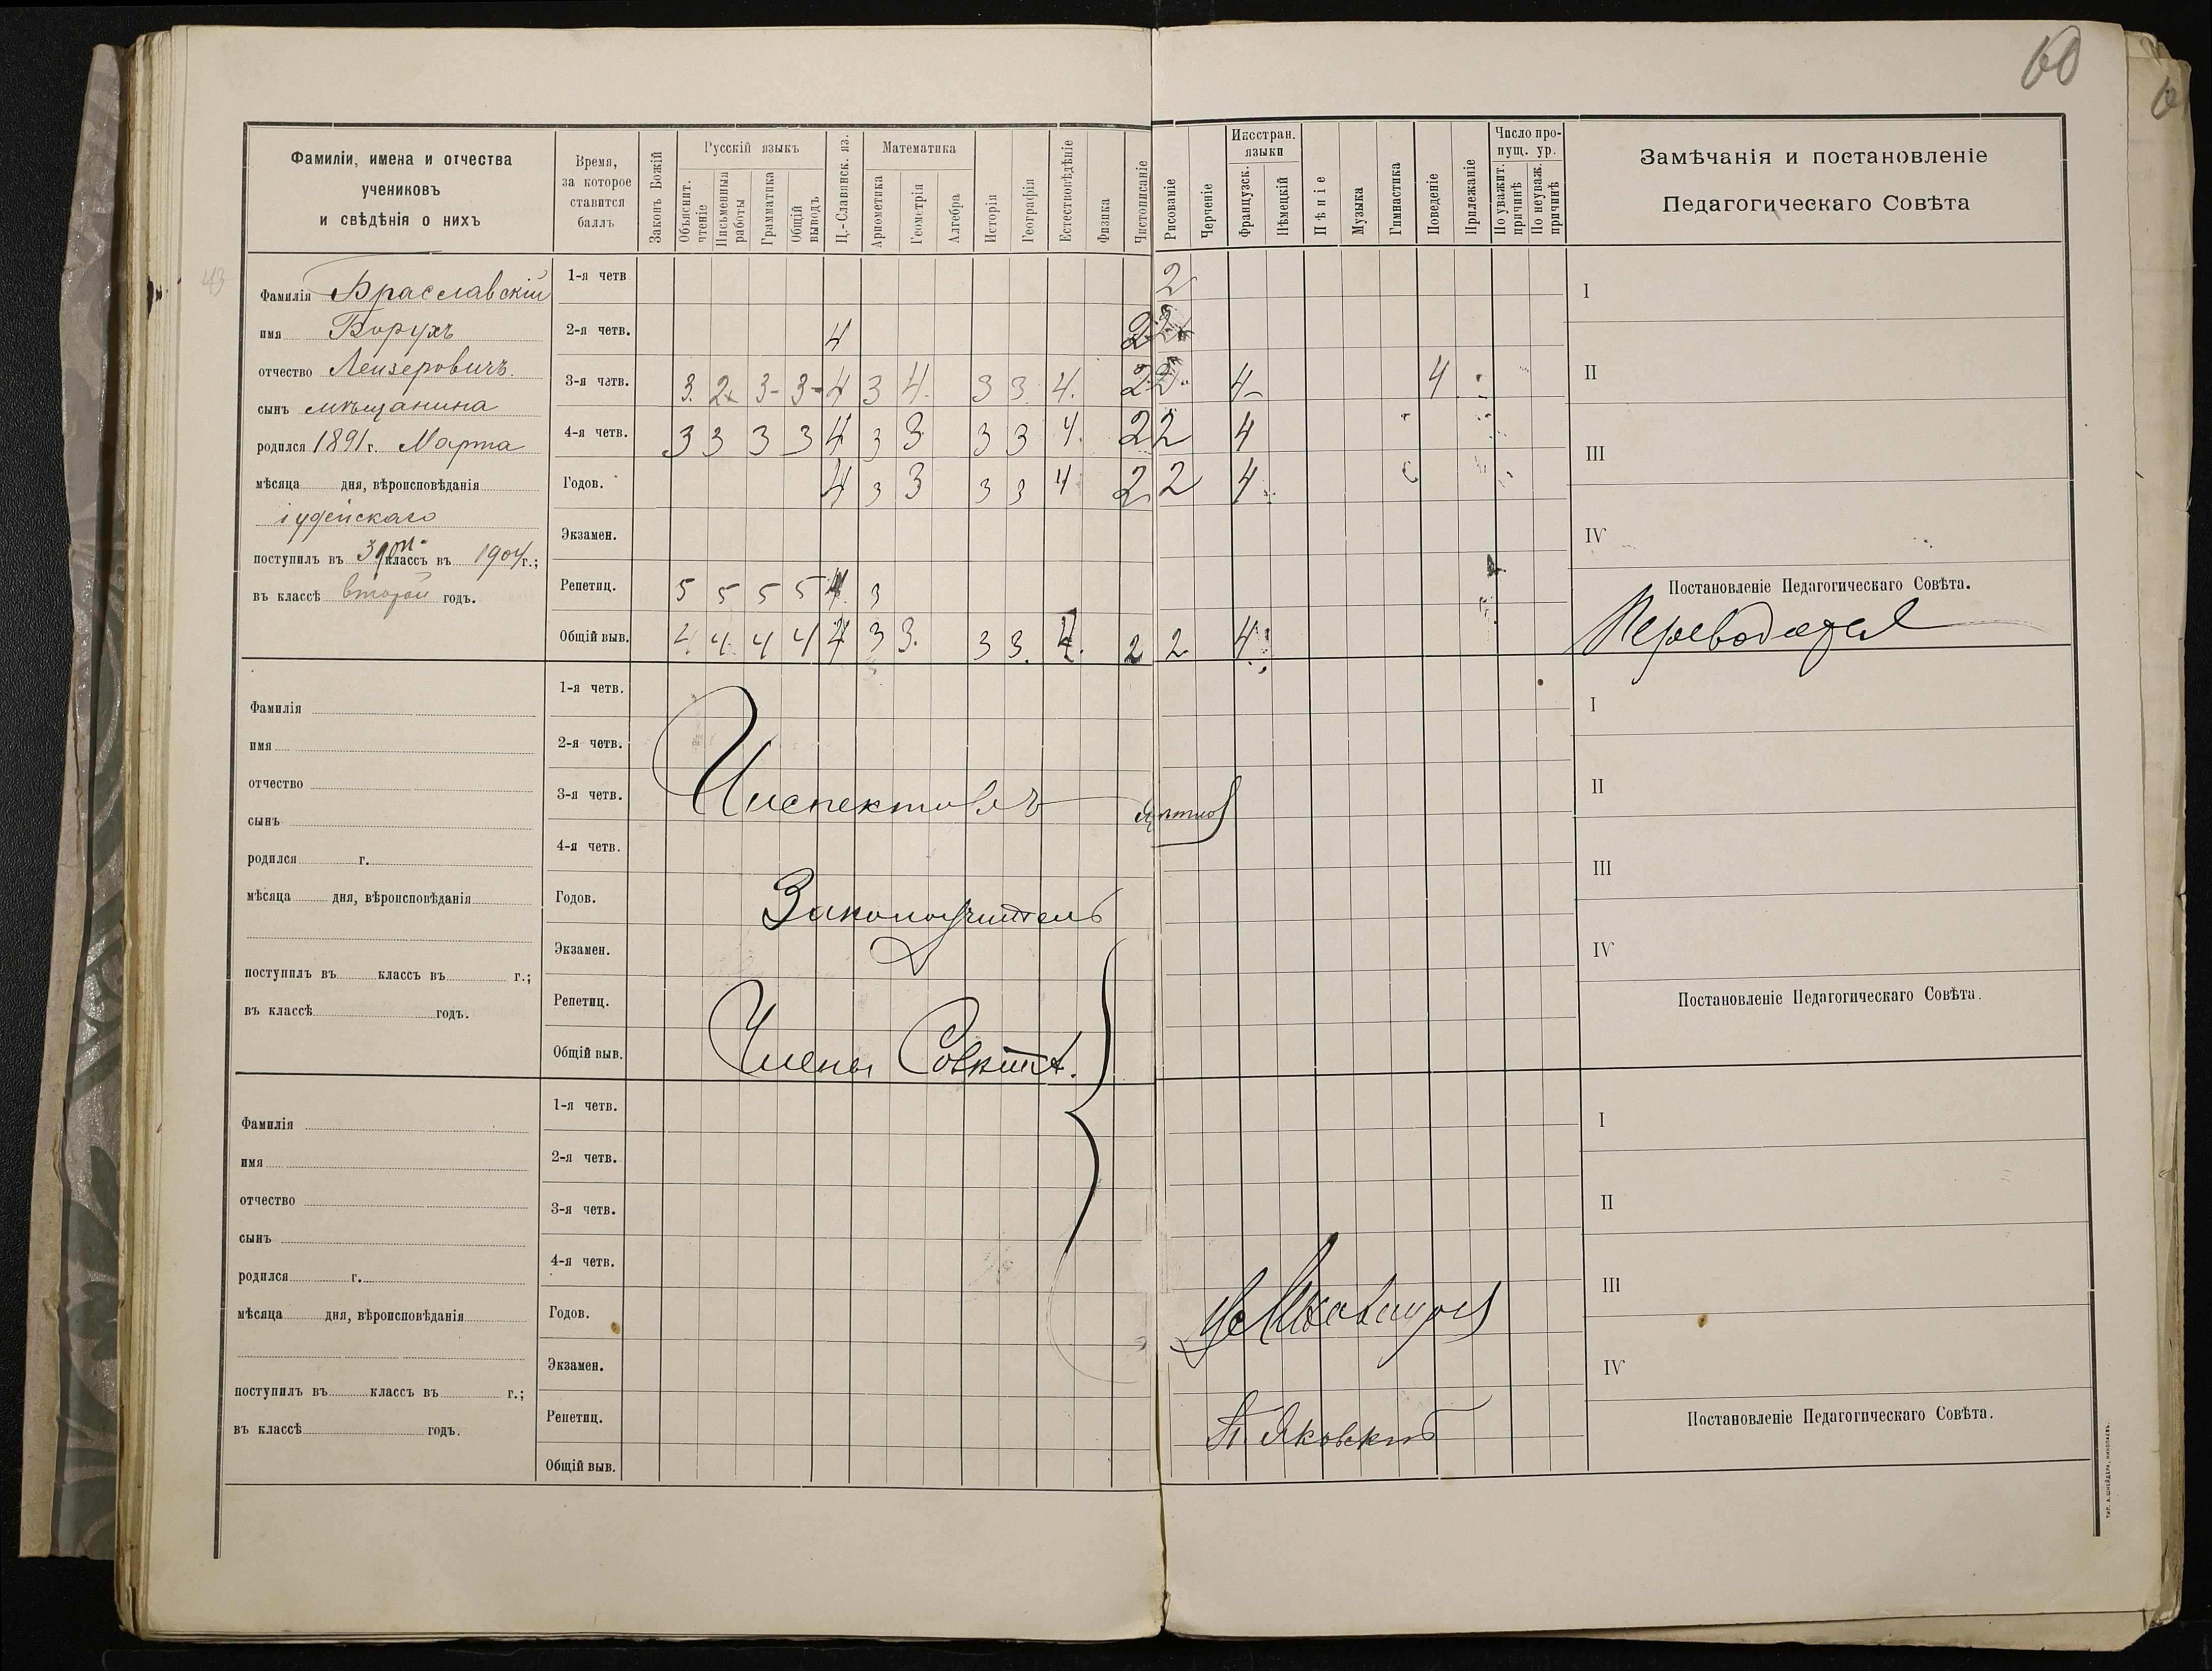 60
Фамиліи, имена и отчества
учениковъ
и свѣдѣнія о нихъ
Время,
за которое
ставится
баллъ
Законъ Божій
Русскій языкъ
Объяснит. чтеніе
Письменныя работы
Грамматика
Общій выводъ
Ц.-Славянск. яз.
Математика
Ариѳметика
Геометрія
Алгебра
Исторія
Географія
Естествовѣдѣніе
Физика
Чистописаніе
Рисованіе
Черченіе
Иностран. языки
Французск.
Нѣмецкій
Пѣніе
Музыка
Гимнастика
Поведеніе
Прилежаніе
Число пропущ. ур.
По уважит. причинѣ
По неуваж. причинѣ
Замѣчанія и постановленіе
Педагогическаго Совѣта
43
Фамилія Браславскій
имя Борухъ
отчество Лейзеровичъ
сынъ мѣщанина
родился 1891 г. Марта
мѣсяца дня, вѣроисповѣданія
іудейскаго
поступилъ въ 3 классъ въ 1904 г.;
въ классѣ второй годъ.
1-я четв 2
2-я четв. 4 2 2
3-я четв. 3. 2 3- 3- 4 3 4. 3 3 4. 2 2 4 4
4-я четв. 3 3 3 3 4 3 3 3 3 4. 2 2 4
Годов. 4 3 3 3 3 4 2 2 4
Экзамен.
Репетиц. 5 5 5 5 4 3
Общій выв. 4 4 4 4 4 3 3. 3 3. 4. 2 2 4
I
II
III
IV
Постановленіе Педагогическаго Совѣта.
Переводится
Фамилія
имя
отчество
сынъ
родился г.
мѣсяца дня, вѣроисповѣданія
поступилъ въ классъ въ г.;
въ классѣ годъ.
1-я четв.
2-я четв.
3-я четв.
4-я четв.
Годов.
Экзамен.
Репетиц.
Общій выв.
Инспекторъ
Законоучитель
Члены Совѣта.
I
II
III
IV
Постановленіе Педагогическаго Совѣта.
Фамилія
имя
отчество
сынъ
родился г.
мѣсяца дня, вѣроисповѣданія
поступилъ въ классъ въ г.;
въ классѣ годъ.
1-я четв.
2-я четв.
3-я четв.
4-я четв.
Годов.
Экзамен.
Репетиц.
Общій выв.
I
II
III
IV
Постановленіе Педагогическаго Совѣта.
ТИП. А. ШНЕЙДЕРА, НИКОЛАЕВЪ.